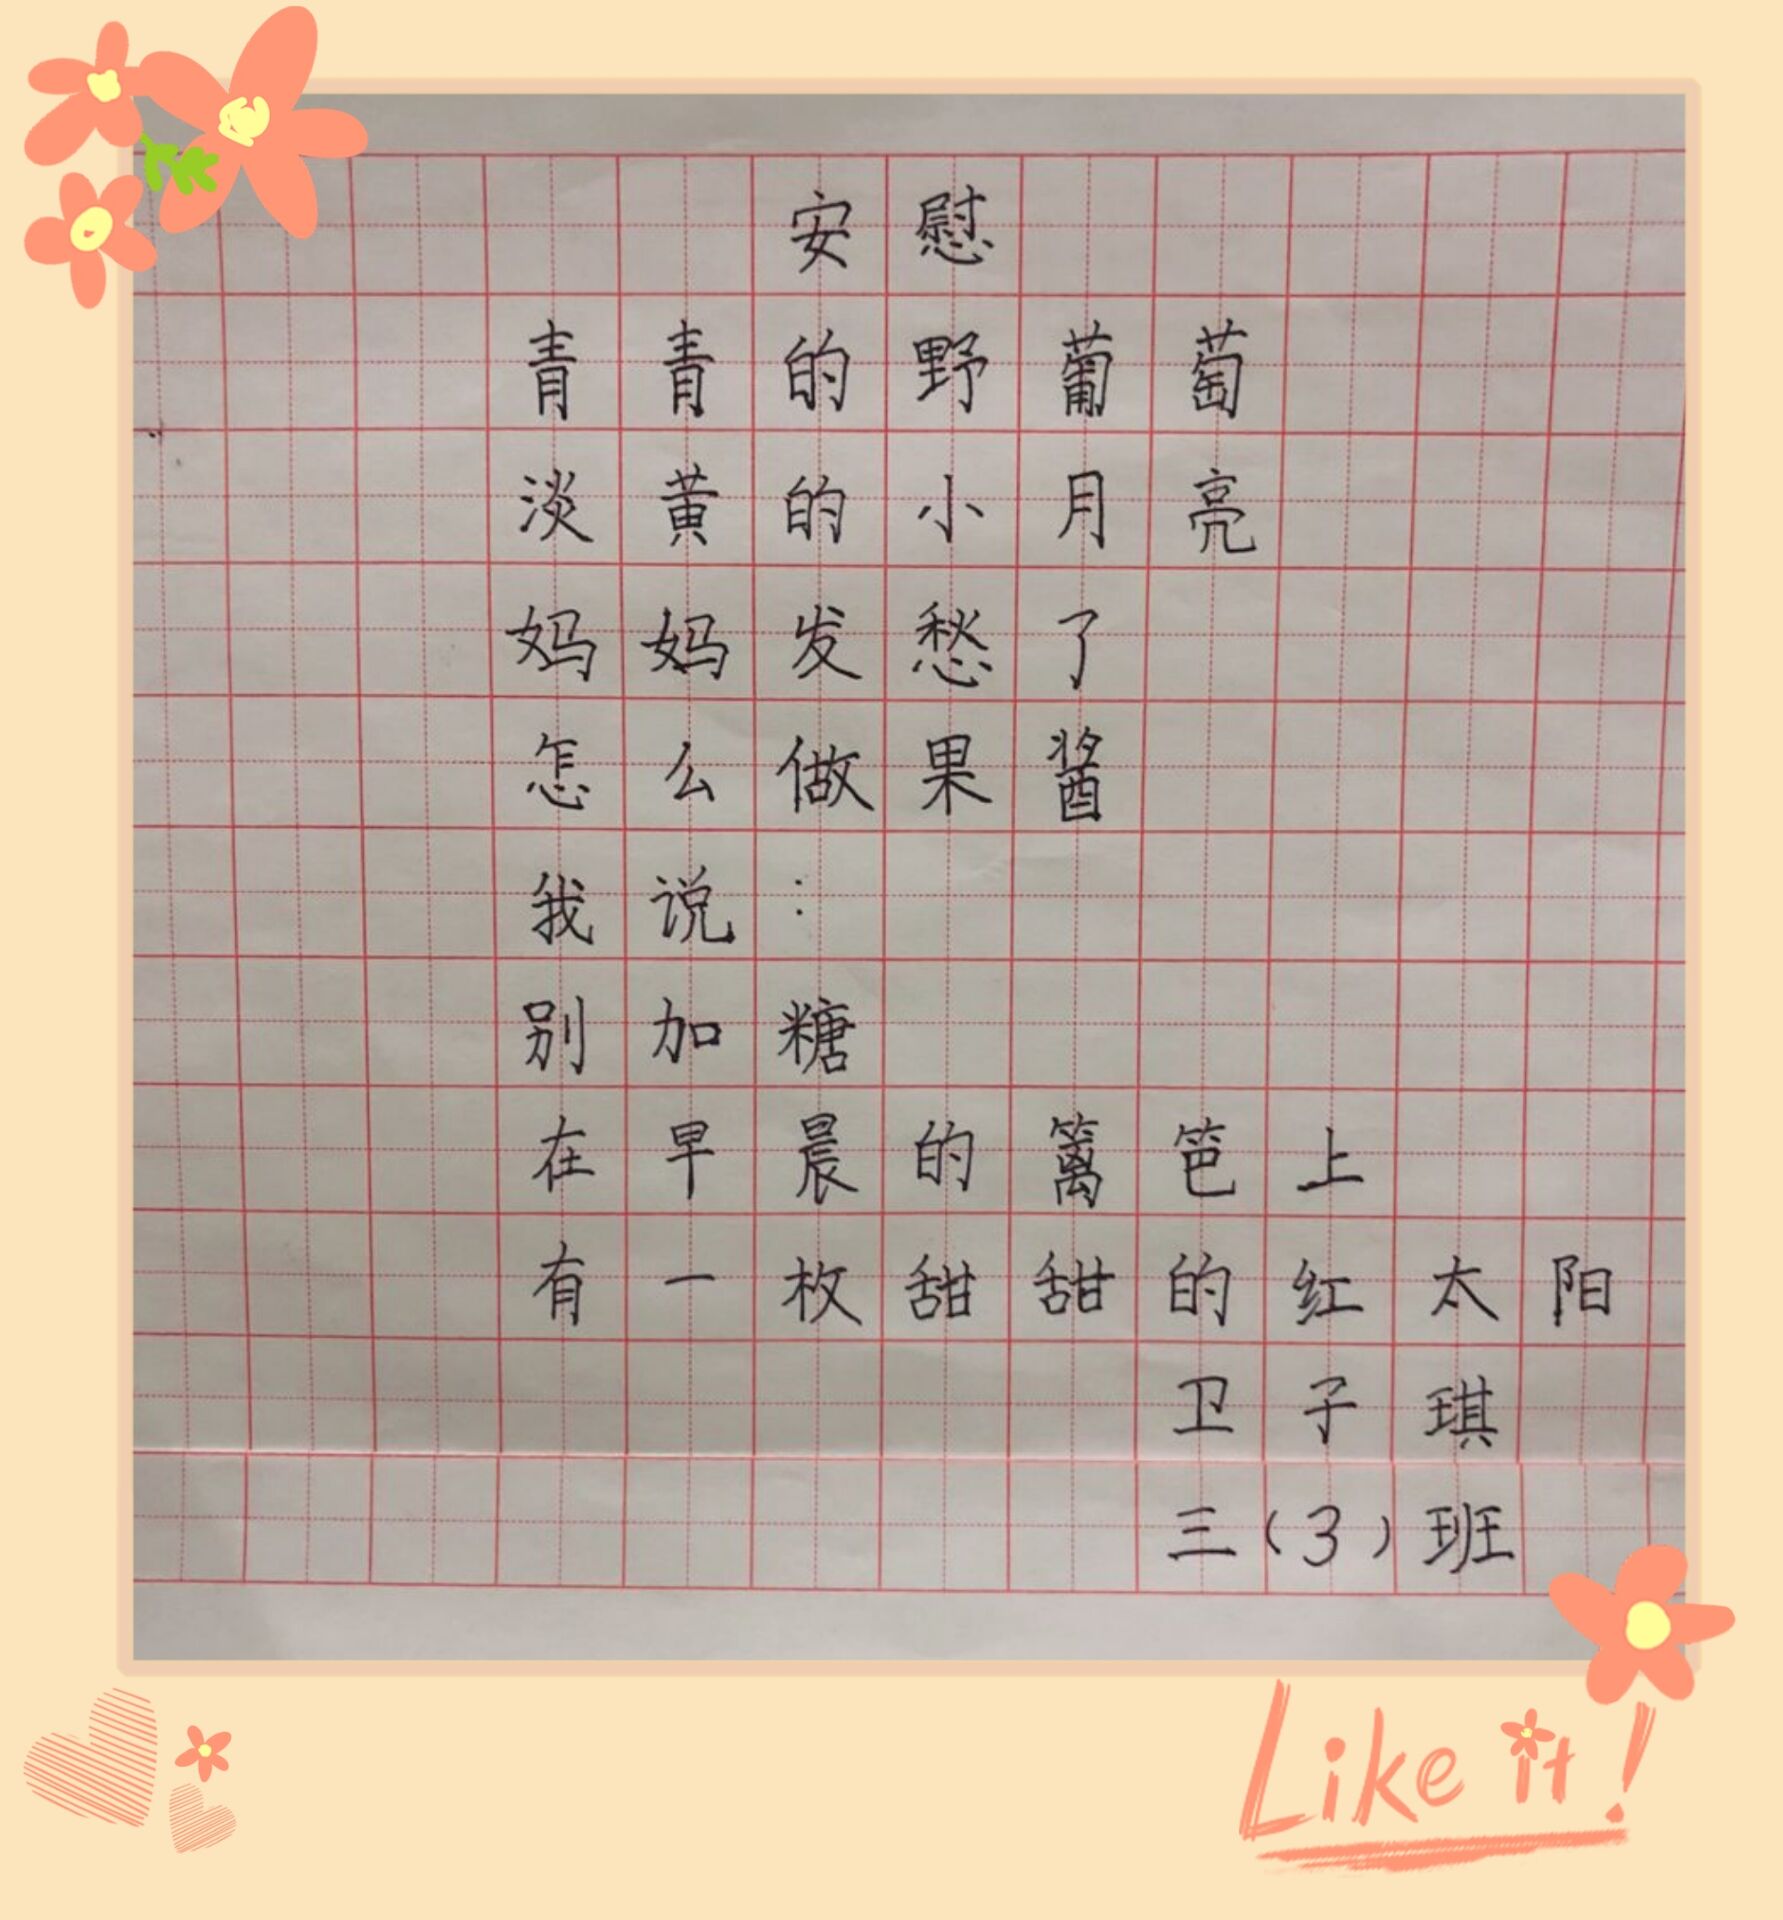 安慰
青青的野葡萄
淡黄的小月亮
妈妈发愁了
怎么做果酱
我说：
别加糖
在早晨的篱笆上
有一枚甜甜的红太阳
卫子琪
三（3）班
Like it!